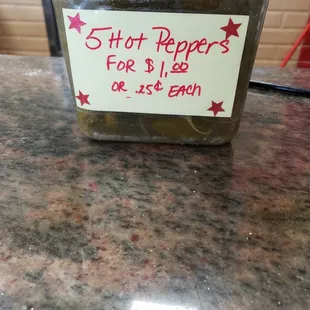 5 Hot Peppers
FOR $1.00
OR .25¢ EACH